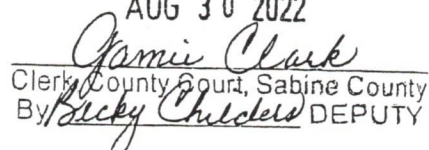 AUG 30 2022
Jamie Clark
Clerk, County Court, Sabine County
By Becky Childers DEPUTY